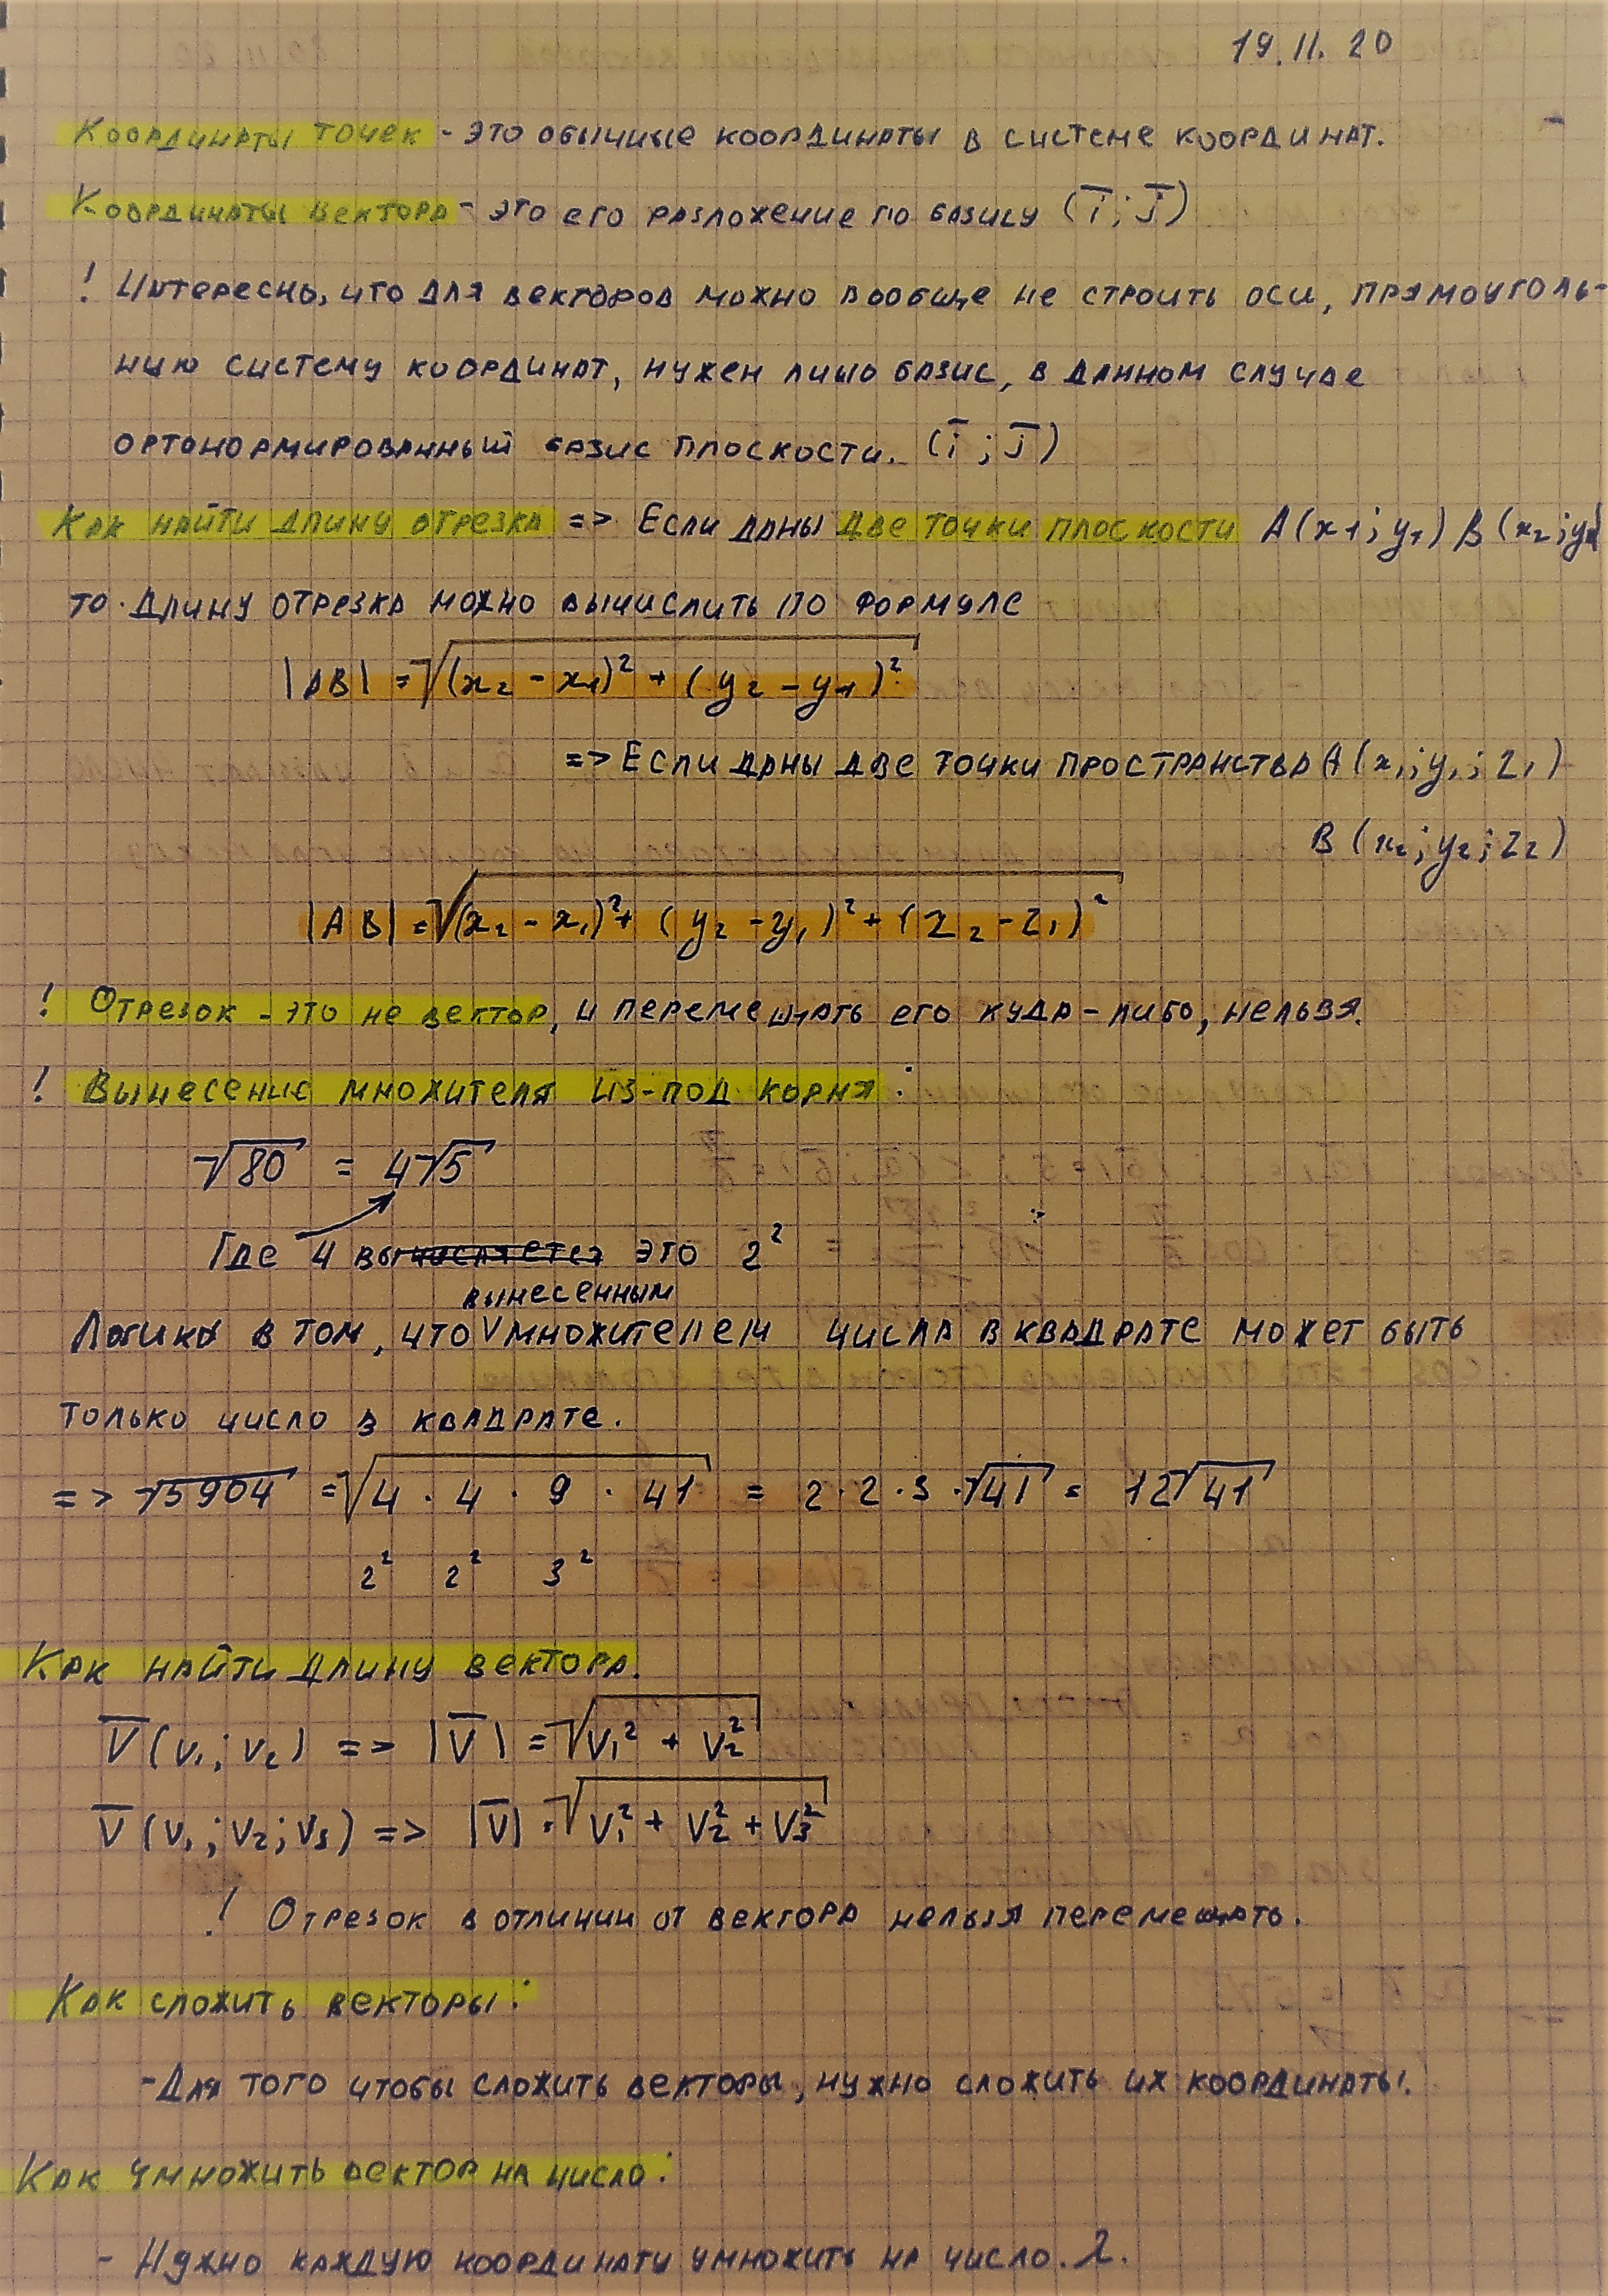 19.11.20
Координаты точек - это обычные координаты в системе координат.
Координаты вектора - это его разложение по базису (i̅; j̅)
! Интересно, что для векторов можно вообще не строить оси, прямоуголь-
ную систему координат, нужен лишь базис, в данном случае
ортонормированный базис плоскости. (i̅; j̅)
Как найти длину отрезка => Если даны две точки плоскости A(x1; y1) B(x2; y2)
то длину отрезка можно вычислить по формуле
|AB| = √((x2 - x1)² + (y2 - y1)²)
=> Если даны две точки пространства A(x1; y1; z1)
B(x2; y2; z2)
|AB| = √((x2 - x1)² + (y2 - y1)² + (z2 - z1)²)
! Отрезок - это не вектор, и перемещать его куда-либо, нельзя.
! Вынесение множителя из-под корня:
√80 = 4√5
Где 4 вычисляется это 2²
вынесенным
Логика в том, что V множителем числа в квадрате может быть
только число в квадрате.
=> √5904 = √(4 · 4 · 9 · 41) = 2·2·3·√41 = 12√41
2² 2² 3²
Как найти длину вектора.
V̅(v1; v2) => |V̅| = √(v1² + v2²)
V̅(v1; v2; v3) => |V̅| = √(v1² + v2² + v3²)
! Отрезок в отличии от вектора нельзя перемещать.
Как сложить векторы:
- Для того чтобы сложить векторы, нужно сложить их координаты.
Как умножить вектор на число:
- Нужно каждую координату умножить на число. λ.